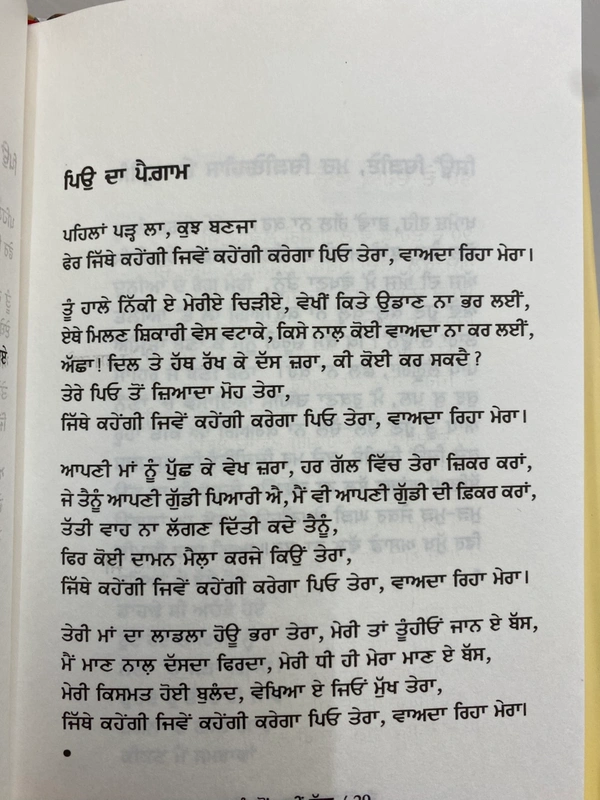 ਪਿਉ ਦਾ ਪੈਗ਼ਾਮ
ਪਹਿਲਾਂ ਪੜ੍ਹ ਲਾ, ਕੁਝ ਬਣਜਾ
ਫੇਰ ਜਿੱਥੇ ਕਹੇਂਗੀ ਜਿਵੇਂ ਕਹੇਂਗੀ ਕਰੇਗਾ ਪਿਓ ਤੇਰਾ, ਵਾਅਦਾ ਰਿਹਾ ਮੇਰਾ।
ਤੂੰ ਹਾਲੇ ਨਿੱਕੀ ਏ ਮੇਰੀਏ ਚਿੜੀਏ, ਵੇਖੀਂ ਕਿਤੇ ਉਡਾਣ ਨਾ ਭਰ ਲਈਂ,
ਏਥੇ ਮਿਲਣ ਸ਼ਿਕਾਰੀ ਵੇਸ ਵਟਾਕੇ, ਕਿਸੇ ਨਾਲ਼ ਕੋਈ ਵਾਅਦਾ ਨਾ ਕਰ ਲਈਂ,
ਅੱਛਾ! ਦਿਲ ਤੇ ਹੱਥ ਰੱਖ ਕੇ ਦੱਸ ਜ਼ਰਾ, ਕੀ ਕੋਈ ਕਰ ਸਕਦੈ?
ਤੇਰੇ ਪਿਓ ਤੋਂ ਜ਼ਿਆਦਾ ਮੋਹ ਤੇਰਾ,
ਜਿੱਥੇ ਕਹੇਂਗੀ ਜਿਵੇਂ ਕਹੇਂਗੀ ਕਰੇਗਾ ਪਿਓ ਤੇਰਾ, ਵਾਅਦਾ ਰਿਹਾ ਮੇਰਾ।
ਆਪਣੀ ਮਾਂ ਨੂੰ ਪੁੱਛ ਕੇ ਵੇਖ ਜ਼ਰਾ, ਹਰ ਗੱਲ ਵਿੱਚ ਤੇਰਾ ਜ਼ਿਕਰ ਕਰਾਂ,
ਜੇ ਤੈਨੂੰ ਆਪਣੀ ਗੁੱਡੀ ਪਿਆਰੀ ਐ, ਮੈਂ ਵੀ ਆਪਣੀ ਗੁੱਡੀ ਦੀ ਫ਼ਿਕਰ ਕਰਾਂ,
ਤੱਤੀ ਵਾਹ ਨਾ ਲੱਗਣ ਦਿੱਤੀ ਕਦੇ ਤੈਨੂੰ,
ਫਿਰ ਕੋਈ ਦਾਮਨ ਮੈਲ਼ਾ ਕਰਜੇ ਕਿਉਂ ਤੇਰਾ,
ਜਿੱਥੇ ਕਹੇਂਗੀ ਜਿਵੇਂ ਕਹੇਂਗੀ ਕਰੇਗਾ ਪਿਓ ਤੇਰਾ, ਵਾਅਦਾ ਰਿਹਾ ਮੇਰਾ।
ਤੇਰੀ ਮਾਂ ਦਾ ਲਾਡਲਾ ਹੋਊ ਭਰਾ ਤੇਰਾ, ਮੇਰੀ ਤਾਂ ਤੂੰਹੀਓਂ ਜਾਨ ਏ ਬੱਸ,
ਮੈਂ ਮਾਣ ਨਾਲ਼ ਦੱਸਦਾ ਫਿਰਦਾ, ਮੇਰੀ ਧੀ ਹੀ ਮੇਰਾ ਮਾਣ ਏ ਬੱਸ,
ਮੇਰੀ ਕਿਸਮਤ ਹੋਈ ਬੁਲੰਦ, ਵੇਖਿਆ ਏ ਜਿਓਂ ਮੁੱਖ ਤੇਰਾ,
ਜਿੱਥੇ ਕਹੇਂਗੀ ਜਿਵੇਂ ਕਹੇਂਗੀ ਕਰੇਗਾ ਪਿਓ ਤੇਰਾ, ਵਾਅਦਾ ਰਿਹਾ ਮੇਰਾ।
•